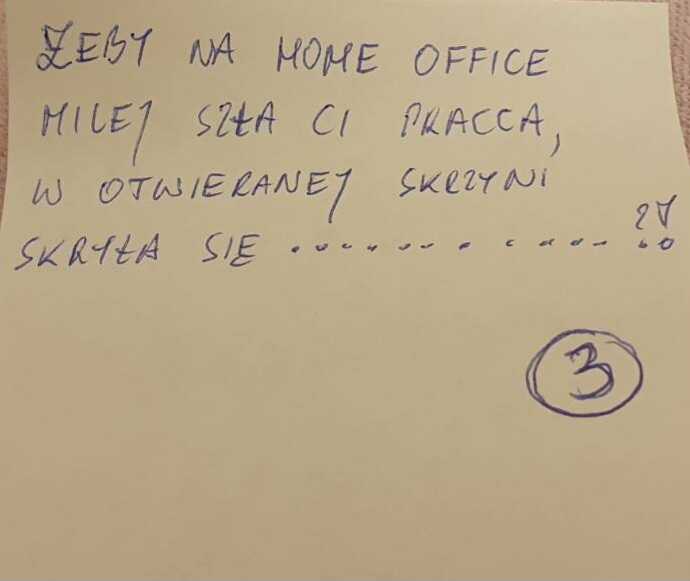 ŻEBY NA HOME OFFICE
MILEJ SZŁA CI PRACCA,
W OTWIERANEJ SKRZYNI
SKRYŁA SIĘ ................
3